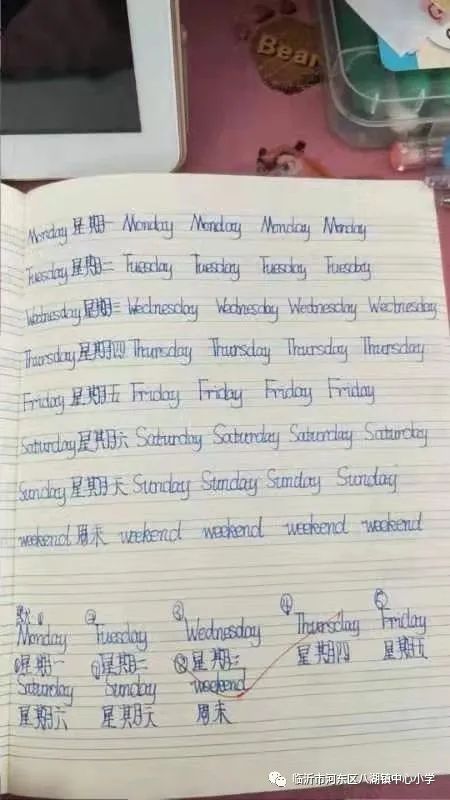 Bear
Monday 星期一 Monday Monday Monday Monday
Tuesday 星期二 Tuesday Tuesday Tuesday Tuesday
Wednesday 星期三 Wednesday Wednesday Wednesday Wednesday
Thursday 星期四 Thursday Thursday Thursday Thursday
Friday 星期五 Friday Friday Friday Friday
Saturday 星期六 Saturday Saturday Saturday Saturday
Sunday 星期天 Sunday Sunday Sunday Sunday
weekend 周末 weekend weekend weekend weekend
默 ① ② ③ ④ ⑤
Monday Tuesday Wednesday Thursday Friday
星期一 星期二 星期三 星期四 星期五
⑥ ⑦ ⑧
Saturday Sunday weekend
星期六 星期天 周末
临沂市河东区八湖镇中心小学